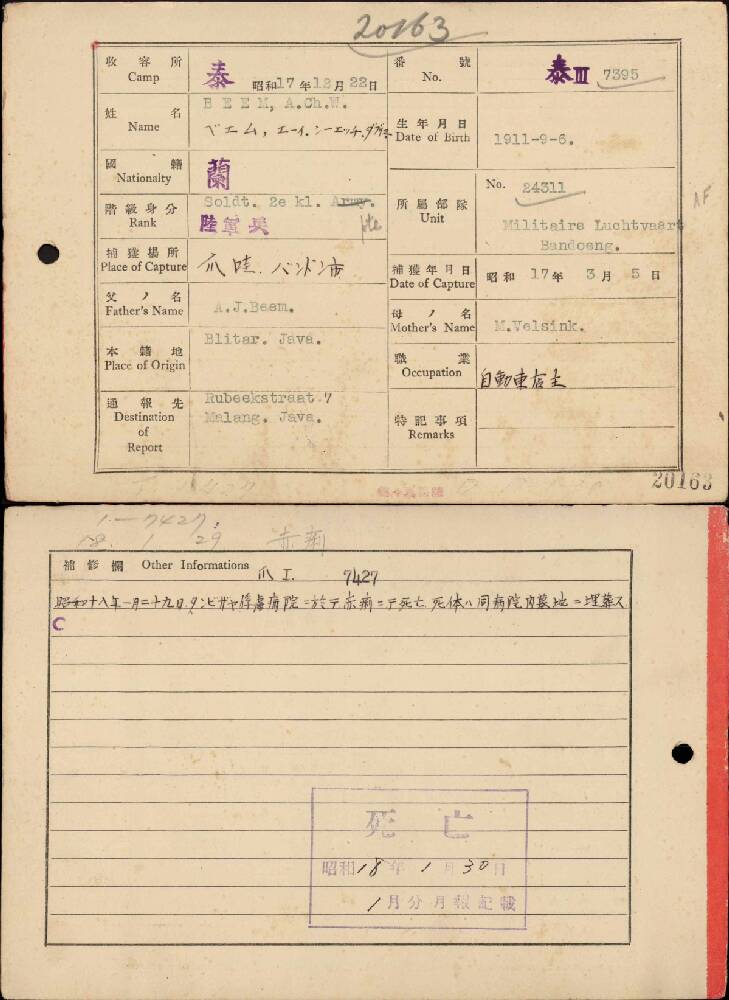 20163
收容所
Camp
泰 昭和17年12月22日
番號
No.
泰III 7395
姓名
Name
BEEM, A.Ch.W.
ベエム,エーイ.シーエッチ.ダブユー
生年月日
Date of Birth
1911-9-6.
國籍
Nationalty
蘭
階級身分
Rank
Soldt. 2e kl. Army.
陸軍兵
所屬部隊
Unit
No. 24311
Militaire Luchtvaart
Bandoeng.
AF
捕獲場所
Place of Capture
爪哇.バンドン市
捕獲年月日
Date of Capture
昭和 17年 3月 5日
父ノ名
Father's Name
A.J.Beem.
母ノ名
Mother's Name
M.Velsink.
本籍地
Place of Origin
Blitar. Java.
職業
Occupation
自動車店主
通報先
Destination
of
Report
Rubeekstraat 7
Malang. Java.
特記事項
Remarks
20163
1-7427
18. 1 29 赤痢
補修欄 Other Informations
爪 I. 7427
昭和十八年一月二十九日.タンビザヤ俘虜病院ニ於テ赤痢ニテ死亡 死体ハ同病院内墓地ニ埋葬ス
C
死亡
昭和18年1月30日
1月分月報記載